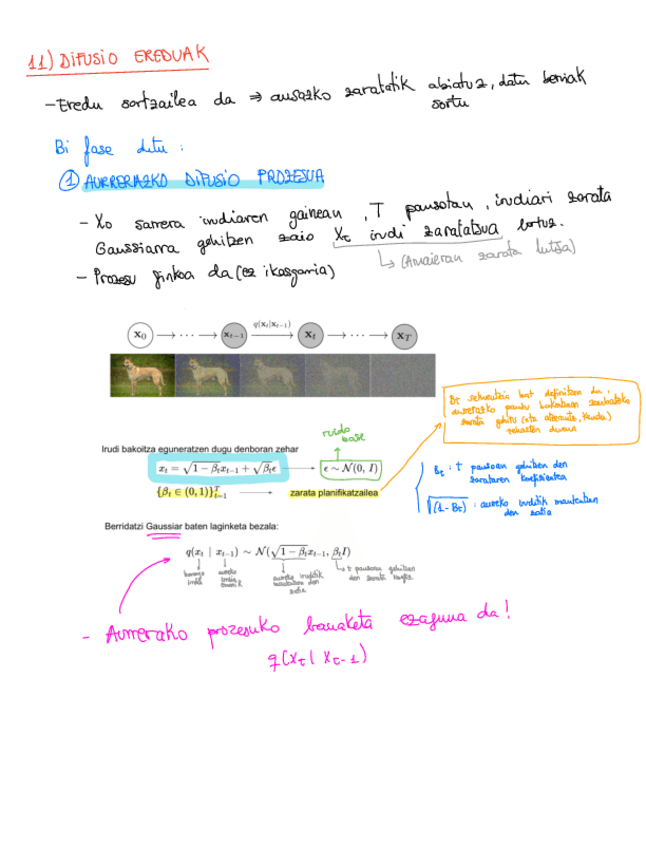 11) DIFUSIO EREDUAK
- Eredu sortzailea da ⇒ ausazko zaratatik abiatuz, datu berriak
sortu
Bi fase ditu :
① AURRERAZKO DIFUSIO PROZESUA
- X₀ sarrera irudiaren gainean, T pausotan, irudiari zarata
Gaussiarra gehitzen zaio Xₜ irudi zaratatsua lortuz.
↳ (Amaieran zarata hutsa)
- Prozesu finkoa da (ez ikasgarria)
q(xₜ|xₜ₋₁)
x₀ → ⋯ → xₜ₋₁ → xₜ → ⋯ → x_T
Bₜ sekuentzia bat definitzen du,
aurrerazko pausu bakoitzean zenbateko
zarata gehitu
ruido
base
Irudi bakoitza eguneratzen dugu denboran zehar
xₜ = √(1 − βₜ)xₜ₋₁ + √βₜϵ → ϵ ~ N(0, I)
{βₜ ∈ (0,1)}ᵀₜ₌₁ → zarata planifikatzailea
Bₜ : t pausoan gehitzen den
zarataren koefizientea
√(1-Bₜ) : aurreko iruditik mantentzen
den ratia
Berridatzi Gaussiar baten laginketa bezala:
q(xₜ | xₜ₋₁) ~ N(√(1 − βₜ)xₜ₋₁, βₜI)
aurreko irudia
aurreko iruditik mantentzen den ratia
t pausoan gehitzen den zarata
- Aurrerako prozesuko banaketa ezaguna da!
q(xₜ | xₜ₋₁)